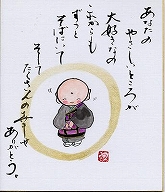 あなたの
やさしいところが
大好きなの
これからも
ずっと
そばにいて
そして
たくさんの幸せ
ありがとう。